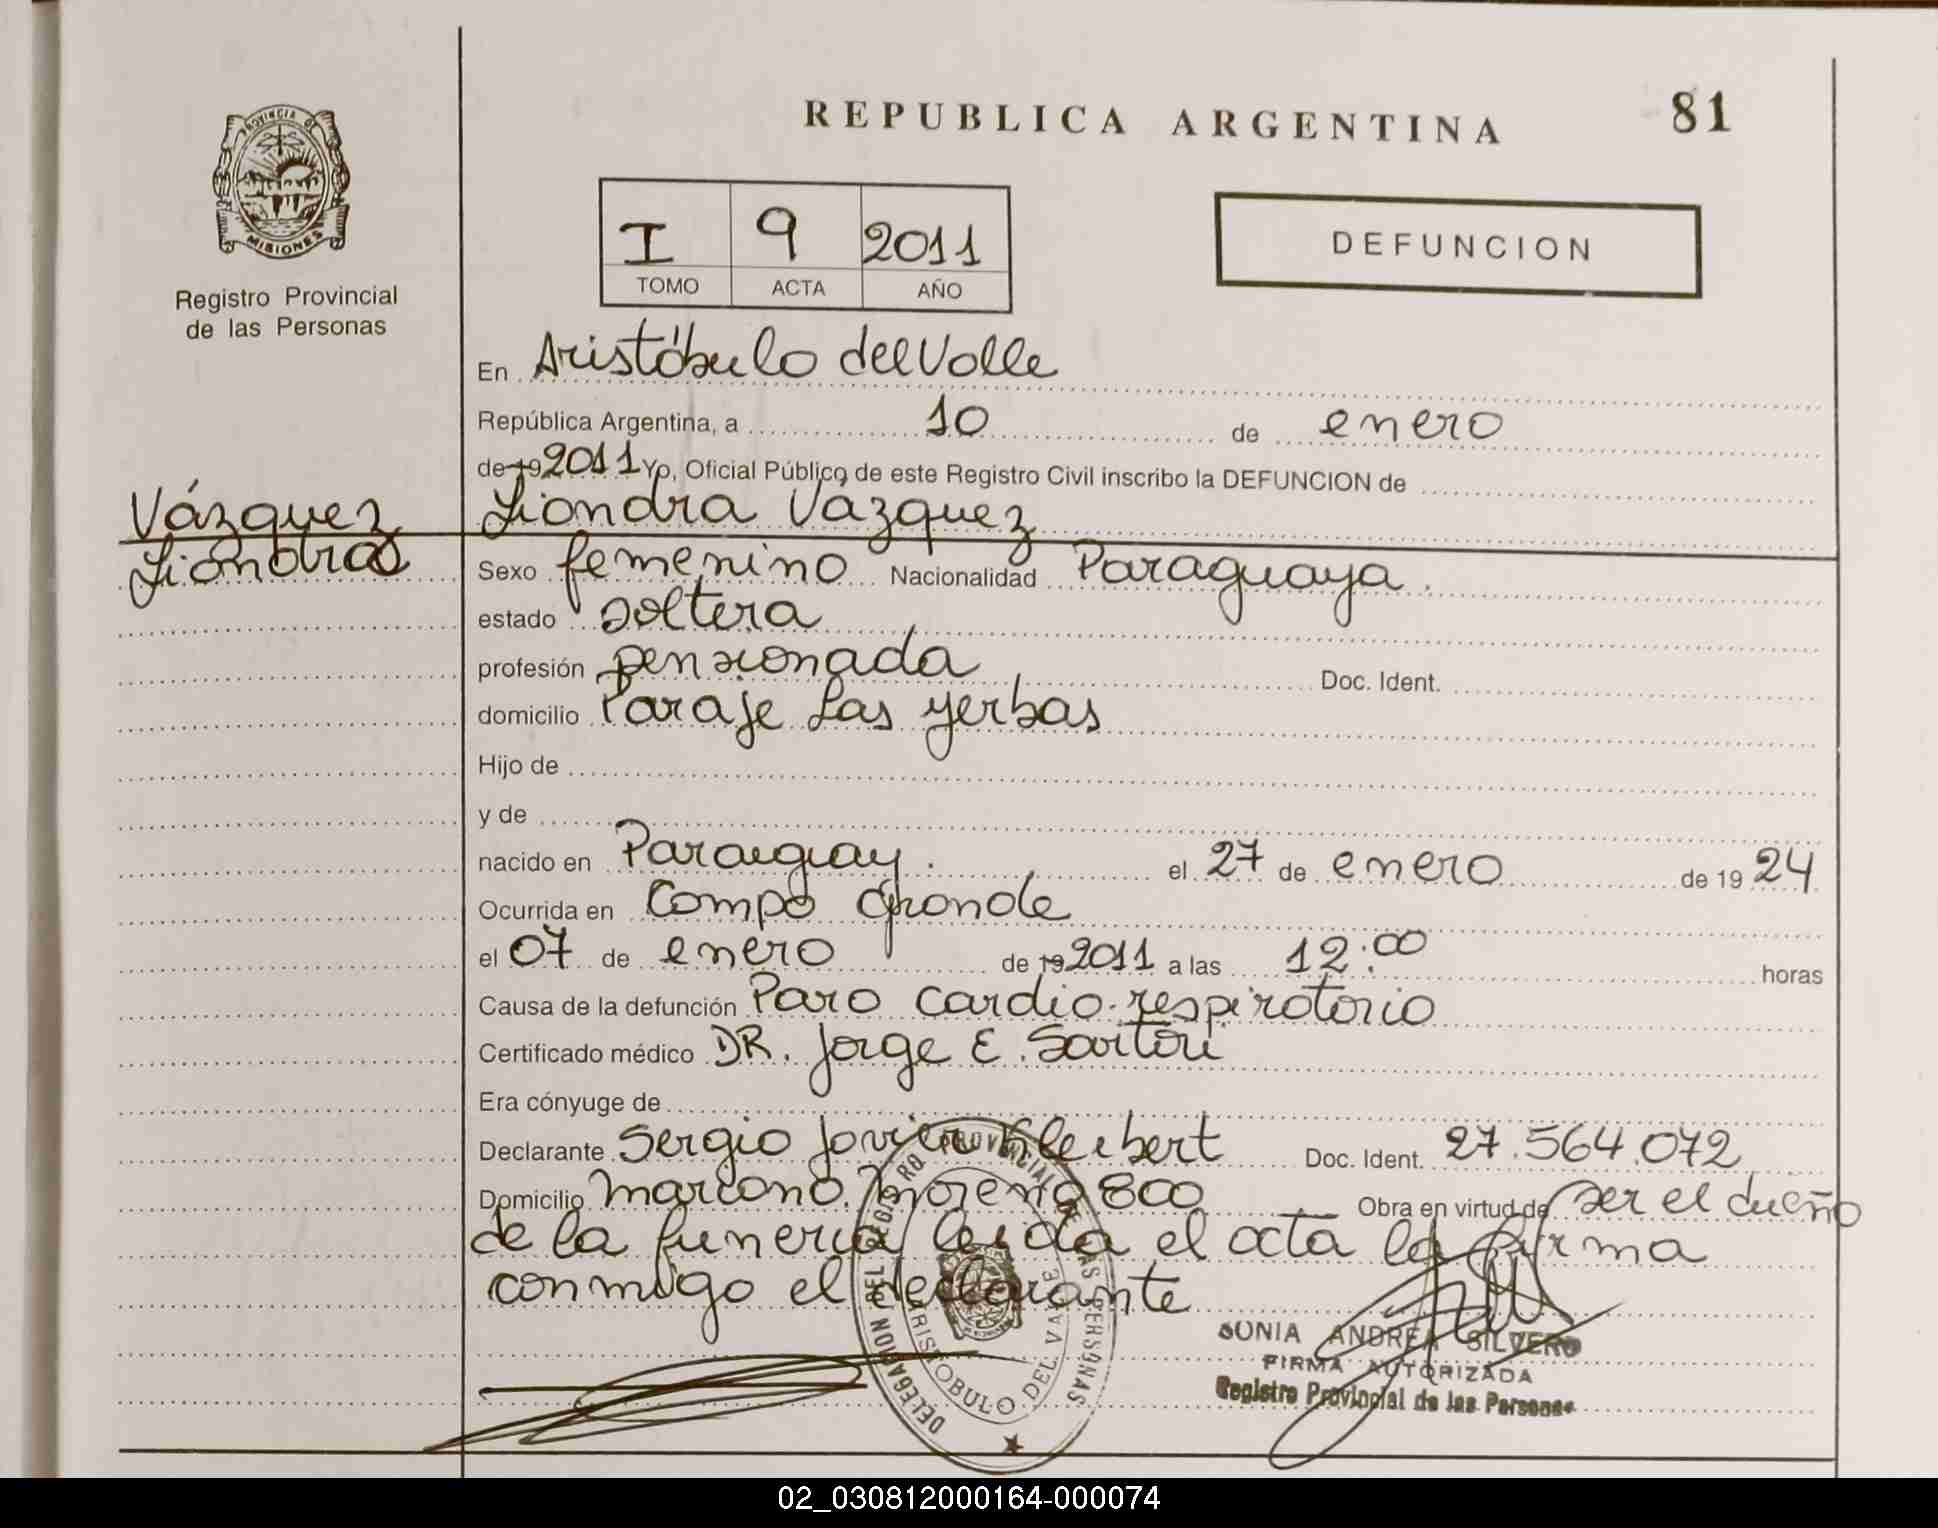 REPUBLICA ARGENTINA
81
PROVINCIA DE
MISIONES
Registro Provincial
de las Personas
I 9 2011
TOMO ACTA AÑO
DEFUNCION
En Aristóbulo del Valle
República Argentina, a 10 de enero
de 19 2011 Yo, Oficial Público de este Registro Civil inscribo la DEFUNCION de
Vázquez
Liandra Vazquez
Sexo femenino Nacionalidad Paraguaya.
estado soltera
profesión pensionada Doc. Ident.
domicilio Paraje Las yerbas
Hijo de
y de
nacido en Paraguay. el 27 de enero de 19 24
Ocurrida en Campo Grande
el 07 de enero de 19 2011 a las 12:00 horas
Causa de la defunción Paro cardio-respiratorio
Certificado médico DR. Jorge E. Sartori
Era cónyuge de
Declarante Sergio Javier Kleibert Doc. Ident. 27.564.072
Domicilio Mariano Moreno 800 Obra en virtud de ser el dueño
de la funeria leida el acta la firma
conmigo el declarante
DELEGACION DEL REGISTRO PROVINCIAL DE LAS PERSONAS
ARISTOBULO DEL VALLE
SONIA ANDREA SILVERO
FIRMA AUTORIZADA
Registro Provincial de las Personas
02_030812000164-000074